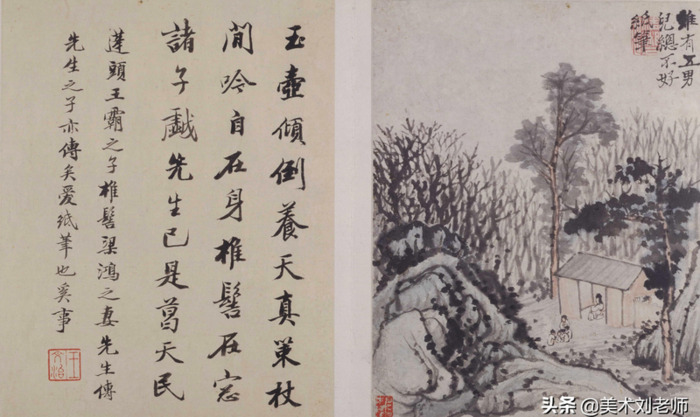 雖有五男
兒總不好
紙筆
玉壺傾倒養天真策杖
閒吟自在身椎髻在窓
諸子戲先生已是葛天民
蓬頭王霸之子椎髻梁鴻之妻先生傳
先生之子亦傳矣愛紙筆也奚事
头条 @美术刘老师